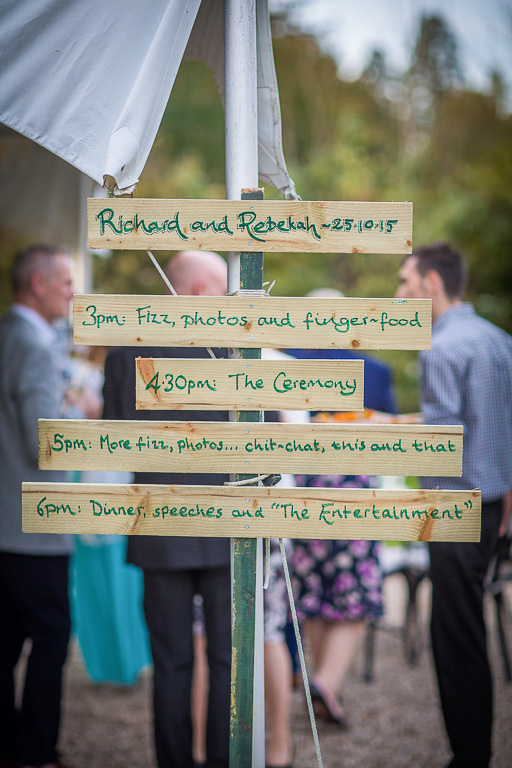 Richard and Rebekah ~ 25.10.15
3pm: Fizz, photos and finger-food
4.30pm: The Ceremony
5pm: More fizz, photos... chit-chat, this and that
6pm: Dinner, speeches and "The Entertainment"